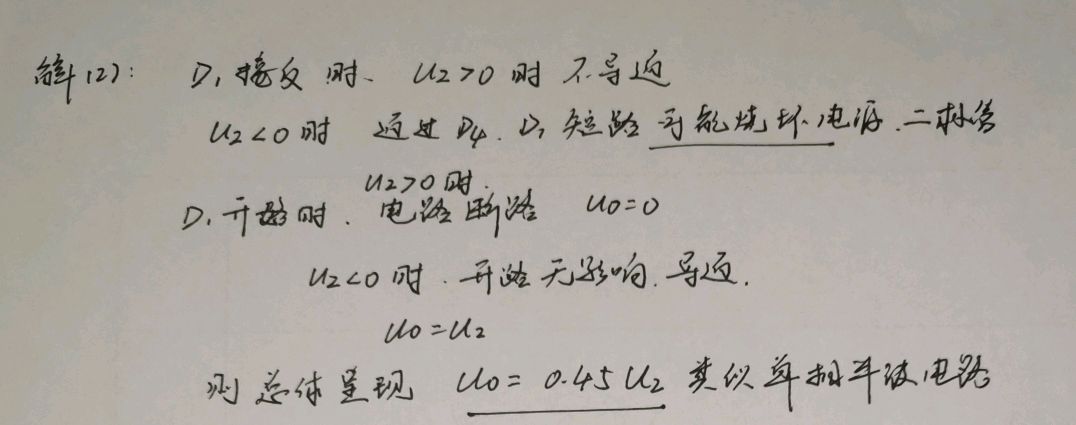 解(2): D₁接反时、 U₂>0 时 不导通
U₂<0 时 通过 D₄、D₁ 短路 可能烧坏电源、二极管
U₂>0 时、
D₁ 开路时、电路断路 U₀=0
U₂<0 时、开路无影响、导通、
U₀=U₂
则 总体呈现 U₀= 0.45 U₂ 类似单相半波电路